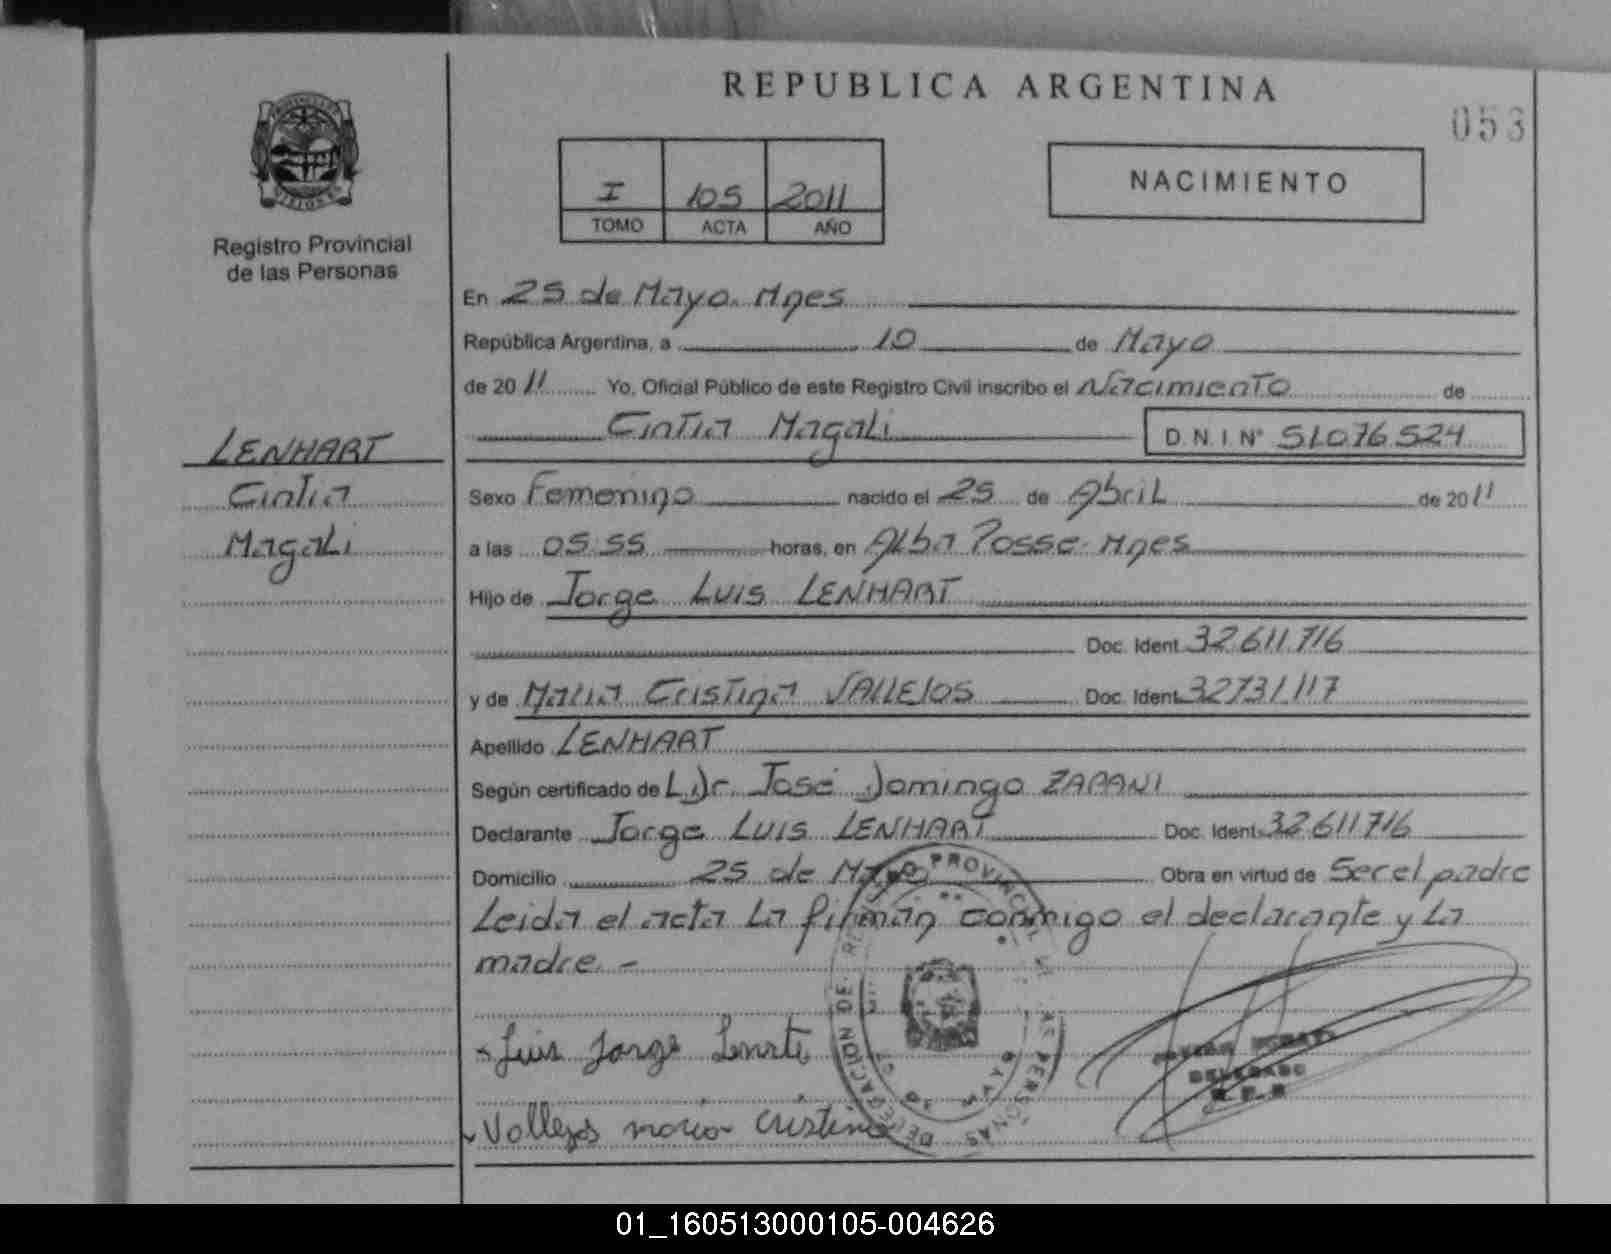 REPUBLICA ARGENTINA
053
NACIMIENTO
I 105 2011
TOMO ACTA AÑO
Registro Provincial
de las Personas
LENHART
Cintia
Magali
En 25 de Mayo. Mnes
República Argentina, a 10 de Mayo
de 2011 Yo, Oficial Público de este Registro Civil inscribo el Nacimiento de
Cintia Magali D.N.I.N° 51.076.524
Sexo Femenino nacido el 25 de Abril de 2011
a las 05:55 horas, en Alba Posse-Mnes
Hijo de Jorge Luis LENHART
Doc. Ident. 32.611.716
y de Maria Cristina VALLEJOS Doc. Ident. 32731117
Apellido LENHART
Según certificado de L. Dr. José Domingo
Declarante Jorge Luis LENHART Doc. Ident. 32.611716
Domicilio 25 de Mayo Obra en virtud de Ser el padre
Leida el acta La firman conmigo el declarante y La
madre.-
Luis Jorge
Vallejos maria Cristina
DELEGACION DE REGISTRO PROVINCIAL DE LAS PERSONAS
25 DE MAYO
DELEGADO
R.P.P.
01_160513000105-004626